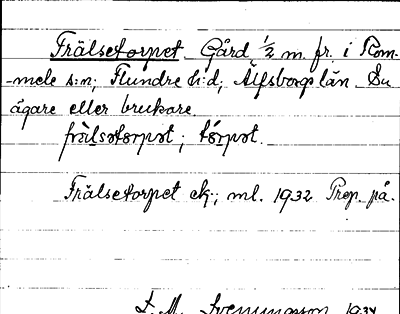 Frälsetorpet Gård 1/2 m. fr. i Rom-
-mele s:n; Flundre h:d; Älfsborgs län Du
ägare eller brukare
frälsətɷrpət; tɷrpət.
Frälsetorpet ek.; ml. 1932 Prep. på.
L. M. Svenungsson 1934